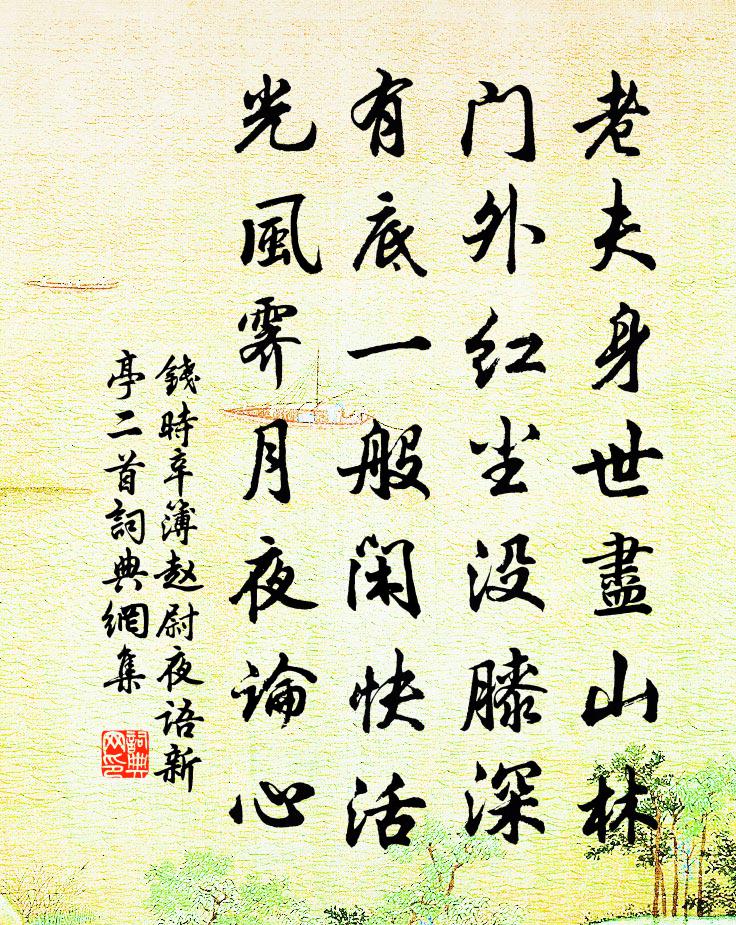 老夫身世盡山林
门外红尘没膝深
有底一般闲快活
光風霽月夜論心
錢時辛簿赵尉夜语新
亭二首詞典網集
詞典网印